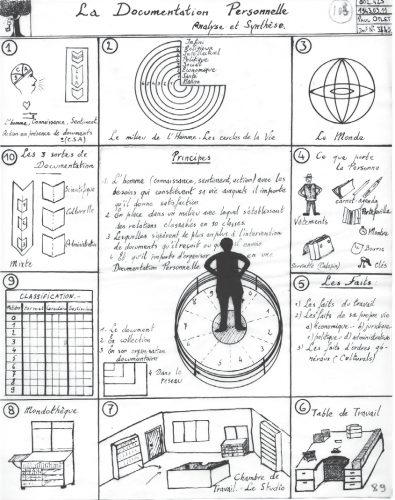 La Documentation Personnelle
Analyse et Synthèse.
1943.03.11
Paul OTLET
1
L'homme, Connaissance, Sentiment
Action en présence de documents
2
Infini
Religieux
Intellectuel
Politique
Social
Economique
Santé
Le milieu de l'Homme - Les cercles de la Vie
3
Le Monde
10 Les 3 sortes de
Documentation
Scientifique
Culturelle
Administrative
Mixte
Principes
1. L'homme (connaissance, sentiment, action) avec les
besoins qui constituent sa vie auxquels il importe
qu'il donne satisfaction
2 En place dans un milieu avec lequel s'établissent
des relations classées en 10 classes
3 Lesquelles s'opèrent de plus en plus à l'intervention
de documents qu'il reçoit ou
4 Et qu'il importe d'organiser en une
Documentation Personnelle
1. Le document
2 La collection
3 En son organisation
documentaire
4 Dans le
réseau
4 Ce que porte
la Personne
Vêtements
carnet-agenda
Portefeuille
Montre
Bourse
Clés
Serviette
5 Les Faits
1) Les faits du travail
2) Les faits de sa propre vie
a) économique - b) juridique
c) politique - d) administrative
3) Les faits d'ordres gé-
néraux (Culturels)
9
CLASSIFICATION.-
Matière Format
1
2
3
4
5
6
7
8
9
8 Mondothèque
7
Chambre de
Travail - Le Studio
6 Table de Travail
89